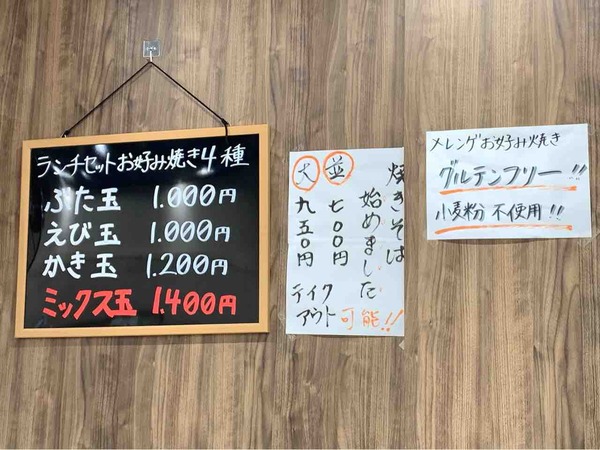 ランチセットお好み焼き4種
ぶた玉 1.000円
えび玉 1.000円
かき玉 1.200円
ミックス玉 1.400円
焼きそば
始めました
並 七〇〇円
大 九五〇円
テイク
アウト可能!!
メレンゲお好み焼き
グルテンフリー!!
小麦粉 不使用!!